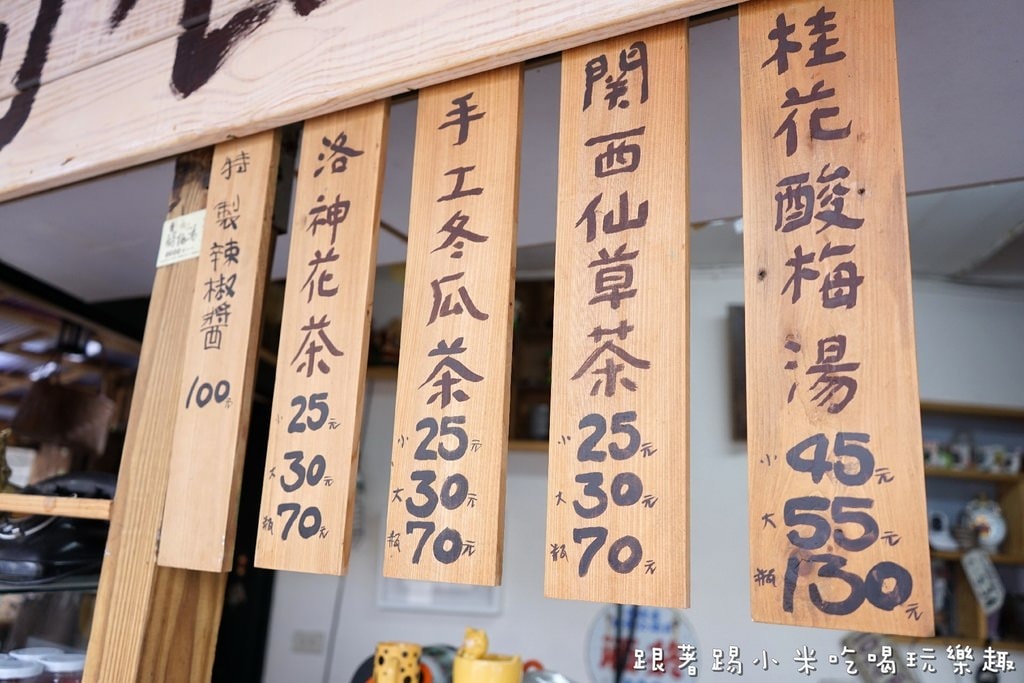 桂花酸梅湯
小45元
大55元
瓶130元
関西仙草茶
小25元
大30元
瓶70元
手工冬瓜茶
小25元
大30元
瓶70元
洛神花茶
小25元
大30元
瓶70元
特製辣椒醬
100元
跟著踢小米吃喝玩樂趣